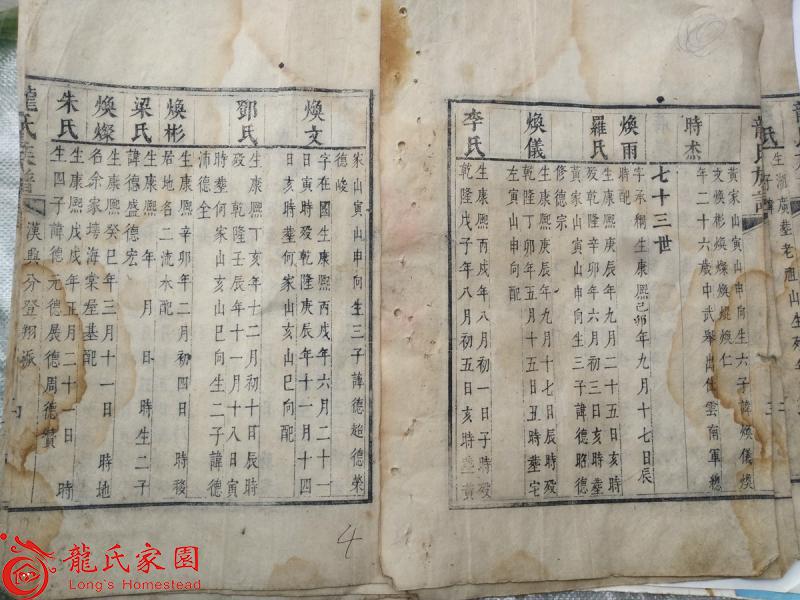 黃家山寅山申向生六子諱煥儀煥
文煥彬煥燦煥緄煥仁
時杰
年二十六歲中武舉出仕雲南軍總
七十三世
煥雨
字承綱生康熙己卯年九月十七日辰
時配
羅氏
生康熙庚辰年九月二十五日亥時
歿乾隆辛卯年六月初三日亥時塟
黃家山寅山申向生三子諱德昭德
修德宗
煥儀
生康熙庚辰年九月十七日辰時歿
乾隆丁卯年五月十五日丑時塟宅
左寅山申向配
李氏
生康熙丙戌年八月初一日子時歿
乾隆戊子年八月初五日亥時塟黃
家山寅山申向生三子諱德超德榮
德峻
煥文
字在國生康熙丙戌年六月二十一
日寅時歿乾隆庚辰年十一月十四
日亥時塟何家山亥山巳向配
鄧氏
生康熙丁亥年十二月初十日辰時
歿乾隆壬辰年十一月十八日寅
時塟何家山亥山巳向生二子諱德
沛德全
煥彬
生康熙辛卯年二月初四日 時移
居地名二流水配
梁氏
生康熙 年 月 日 時生二子
諱德盛德宏
煥燦
生康熙癸巳年三月十一日 時地
名余家塆海棠屋基配
朱氏
生康熙戊戌年五月二十一日 時
生四子諱德元德展德周德贊
龍氏族譜
漢興分登翔派
4
龍氏家園
Long's Homestead